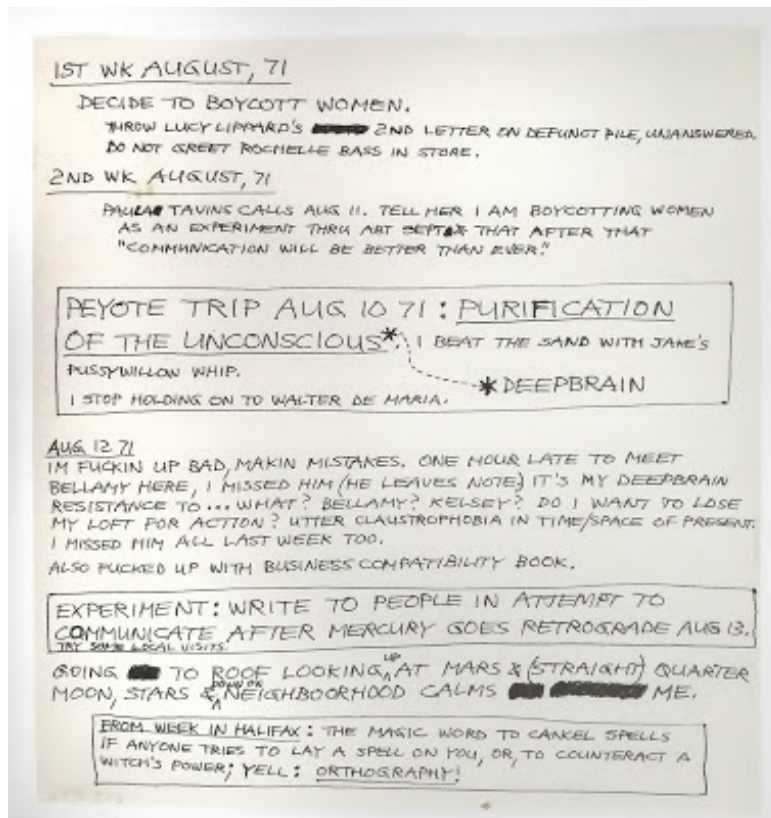 1ST WK AUGUST, 71
DECIDE TO BOYCOTT WOMEN.
THROW LUCY LIPPARD'S 2ND LETTER ON DEFUNCT PILE, UNANSWERED.
DO NOT GREET ROCHELLE BASS IN STORE.
2ND WK AUGUST, 71
PAULA TAVINS CALLS AUG 11. TELL HER I AM BOYCOTTING WOMEN
AS AN EXPERIMENT THRU ABT SEPT THAT AFTER THAT
"COMMUNICATION WILL BE BETTER THAN EVER."
PEYOTE TRIP AUG 10 71 : PURIFICATION
OF THE UNCONSCIOUS*. I BEAT THE SAND WITH JANE'S
PUSSYWILLOW WHIP.
*DEEPBRAIN
I STOP HOLDING ON TO WALTER DE MARIA.
AUG 12 71
IM FUCKIN UP BAD, MAKIN MISTAKES. ONE HOUR LATE TO MEET
BELLAMY HERE, I MISSED HIM (HE LEAVES NOTE) IT'S MY DEEPBRAIN
RESISTANCE TO ... WHAT? BELLAMY? KELSEY? DO I WANT TO LOSE
MY LOFT FOR ACTION? UTTER CLAUSTROPHOBIA IN TIME/SPACE OF PRESENT.
I MISSED HIM ALL LAST WEEK TOO.
ALSO FUCKED UP WITH BUSINESS COMPATIBILITY BOOK.
EXPERIMENT: WRITE TO PEOPLE IN ATTEMPT TO
COMMUNICATE AFTER MERCURY GOES RETROGRADE AUG 13.
TRY SOME LOCAL VISITS.
GOING TO ROOF LOOKING UP AT MARS & (STRAIGHT) QUARTER
MOON, STARS & DOWN ON NEIGHBOORHOOD CALMS ME.
FROM WEEK IN HALIFAX : THE MAGIC WORD TO CANCEL SPELLS
IF ANYONE TRIES TO LAY A SPELL ON YOU, OR, TO COUNTERACT A
WITCH'S POWER; YELL: ORTHOGRAPHY!